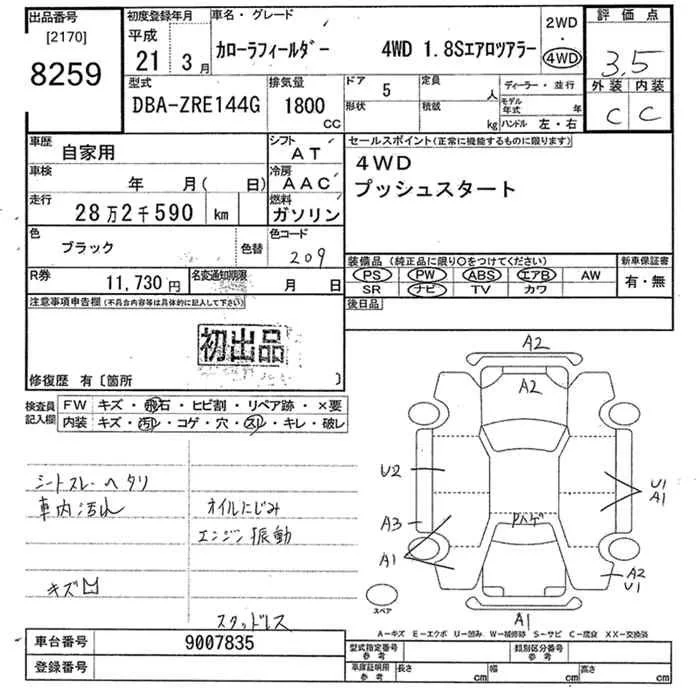 出品番号
[2170]
8259
初度登録年月
平成
21 3月
車名・グレード
カローラフィールダー 4WD 1.8Sエアロツアラー
2WD
・
4WD
評価点
3.5
外装 内装
C C
型式
DBA-ZRE144G
排気量
1800
CC
ドア 5
形状
定員 人
積載 kg
ディーラー・並行
モデル年式 年
ハンドル 左・右
車歴 自家用
シフト AT
車検 年 月( 日)
冷房 AAC
走行 28万2千590 km
燃料 ガソリン
色 ブラック 色替
色コード 209
R券 11,730円
名変通知期限 月 日
セールスポイント(正常に機能するものに限ります)
4WD
プッシュスタート
装備品(純正品に限り○をつけてください)
PS PW ABS エアB AW
SR ナビ TV カワ
新車保証書
有・無
後日品
注意事項申告欄(不具合内容等は具体的に記入して下さい)
初出品
修復歴 有〔箇所 〕
検査員記入欄
FW キズ・飛石・ヒビ割・リペア跡・×要
内装 キズ・汚レ・コゲ・穴・スレ・キレ・破レ
シートスレ・ヘタリ
車内汚れ
オイルにじみ
エンジン振動
キズ
スタッドレス
A2
A2
U2
U1
A1
A3
Rハゲ
A1
A2
U1
A1
スペア
A-キズ E-エクボ U-凹み W-補修跡 S-サビ C-腐食 XX-交換済
車台番号 9007835
登録番号
型式指定番号 参考
類別区分番号 参考
車庫証明用 参考
長さ cm 幅 cm 高さ cm